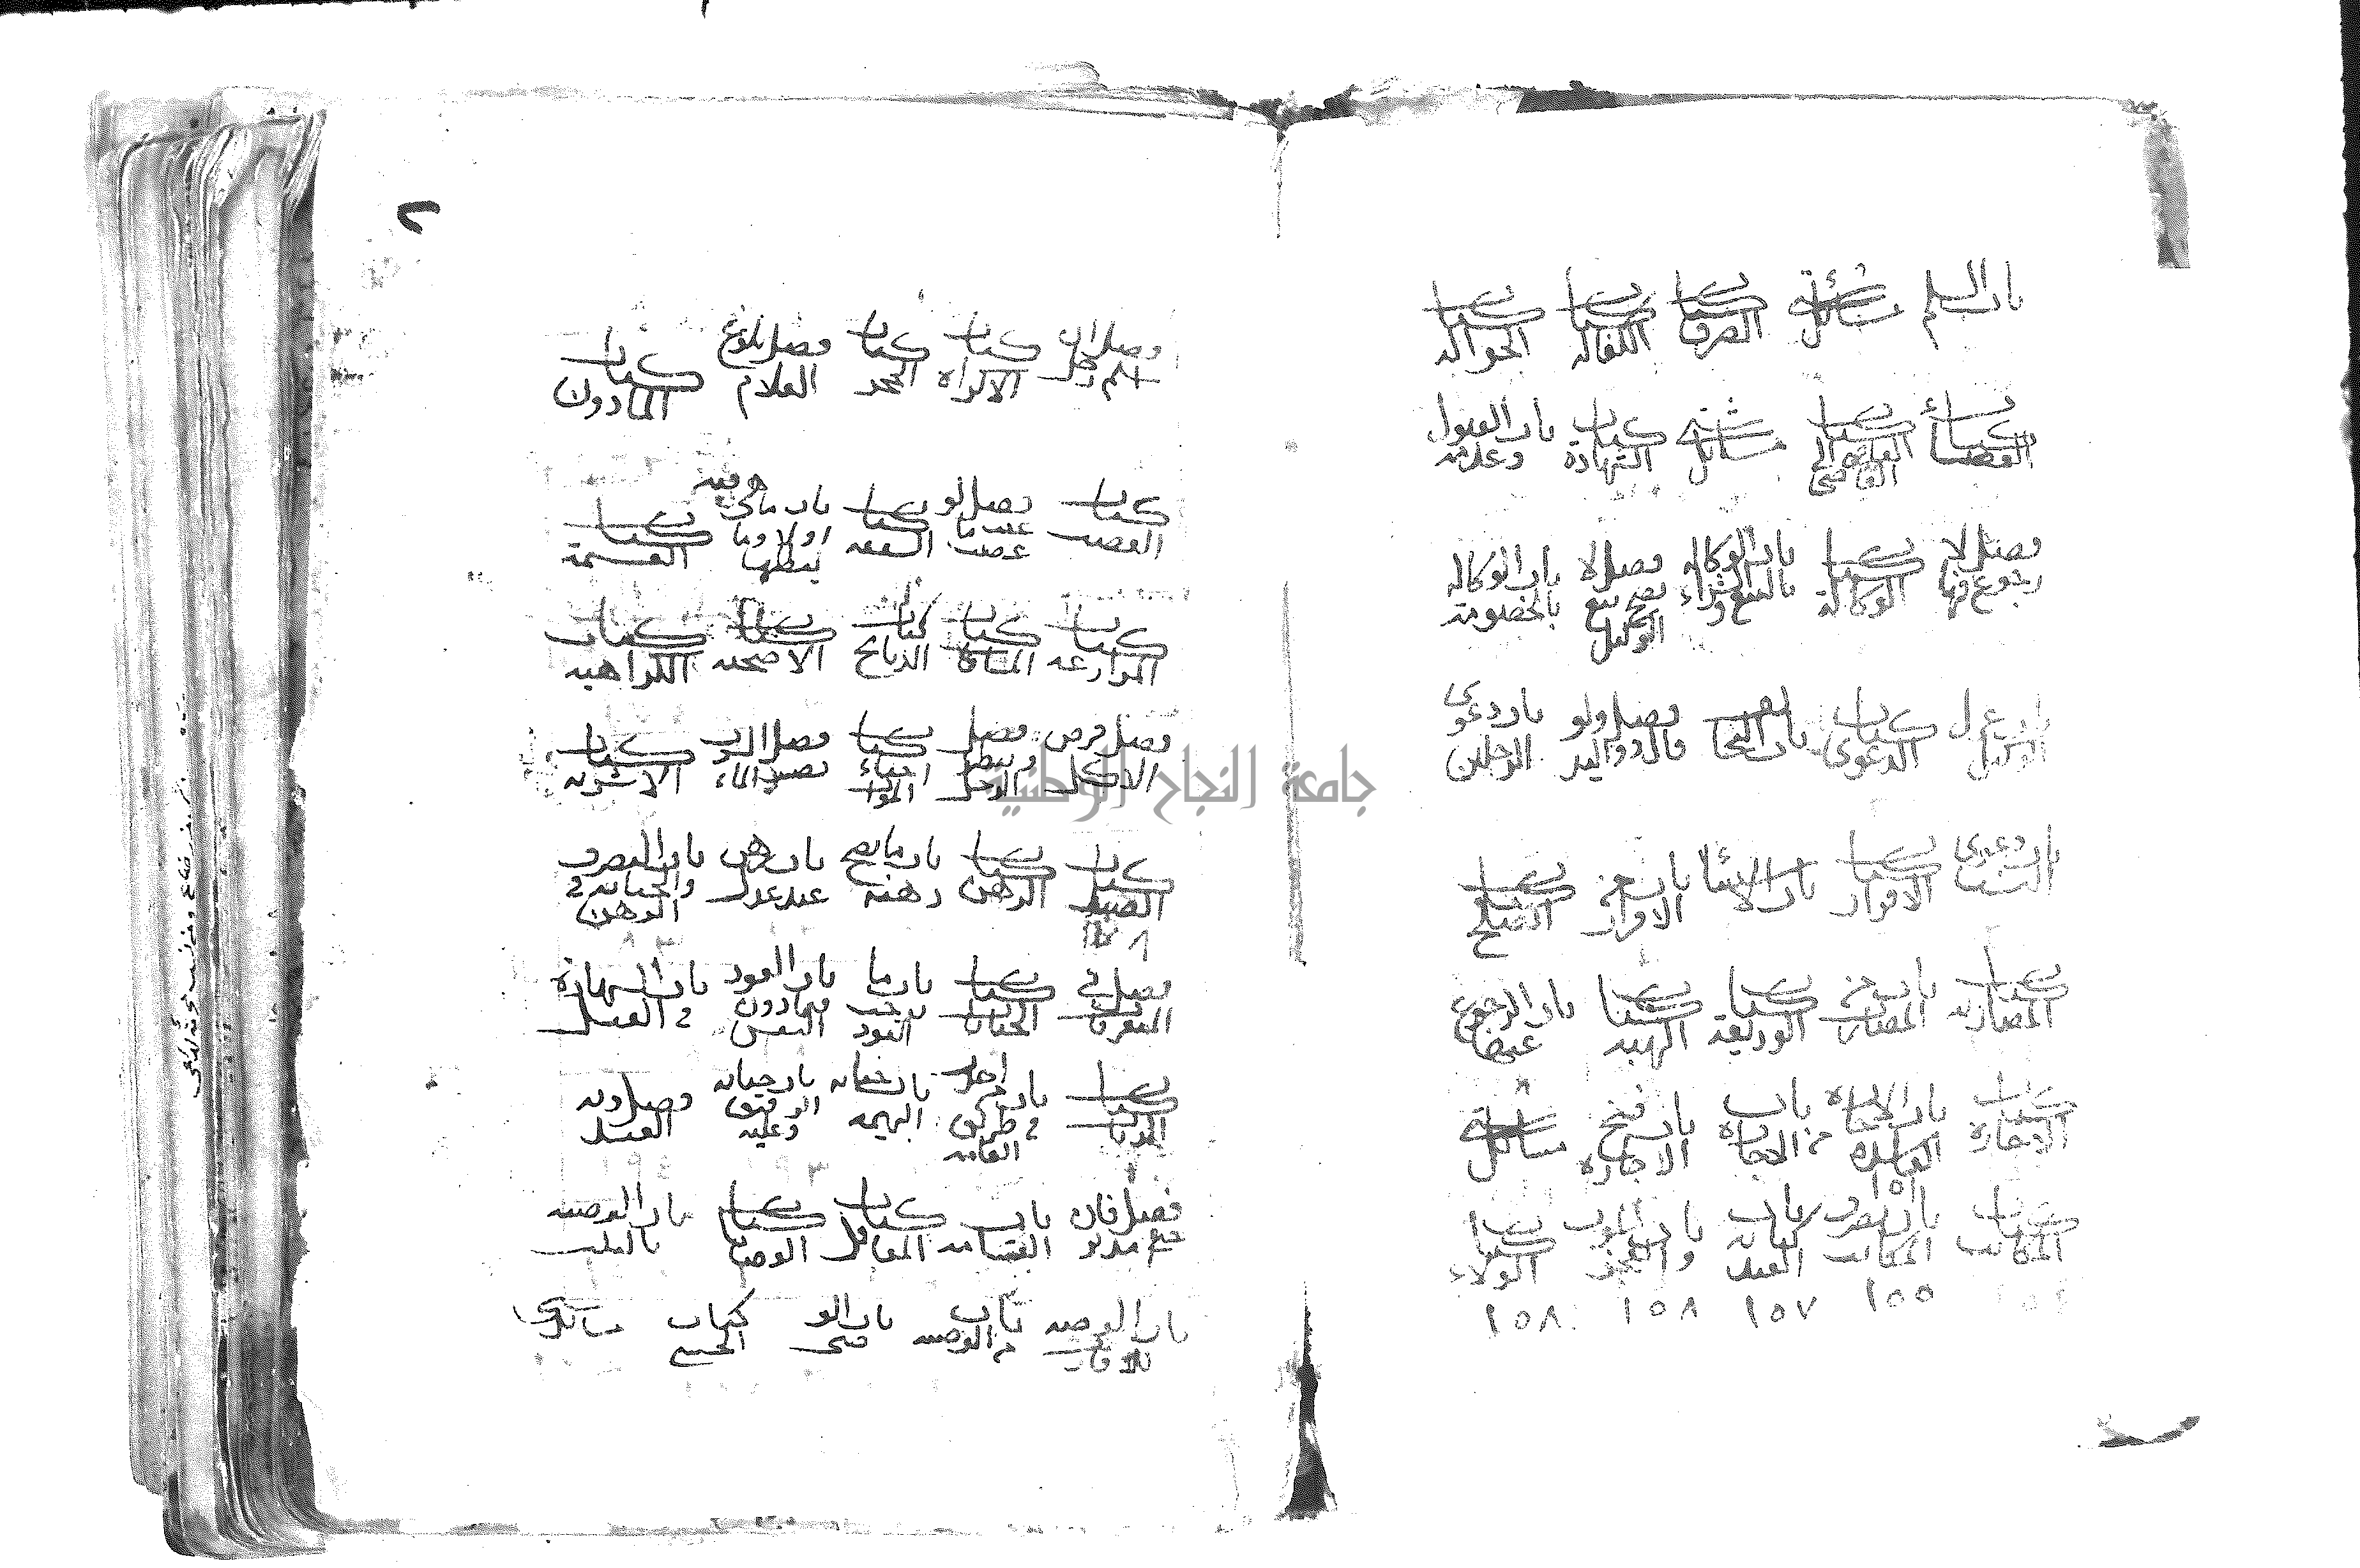 باب السلم مسائل شتى كتاب الصرف كتاب الكفالة كتاب الحواله
كتاب القضاء كتاب القاضى الى القاضى مسائل شتى كتاب الشهادة باب القبول وعدمه
فصل لا رجوع فيها كتاب الوكالة باب الوكاله بالبيع والشراء فصل لا يصح بيع الوكيل باب الوكاله بالخصومة
عزل الوكيل كتاب الدعوى باب التحالف فصل ولو قال ذو اليد باب دعوى الرجلين
باب دعوى النسب كتاب الاقرار باب الاستثنا باب الاقرار كتاب الصلح
كتاب المضاربه باب المضارب كتاب الوديعة كتاب الهبه باب الرجوع عنها
كتاب الاجارة باب الاجاره الفاسده باب من الاجارة باب فسخ الاجاره مسائل شتى
كتاب المكاتب باب تصرف المكاتب باب كتابه العبد باب الموت والعجز كتاب الولاء
١٥٥ ١٥٧ ١٥٨ ١٥٨
٢
فصل ان اسلم رجل كتاب الاكراه كتاب الحجر فصل بلوغ الغلام كتاب الماذون
كتاب الغصب فصل لو غيب ما غصب كتاب الشفعه باب ماهى فيه اولا وما يبطلها كتاب القسمة
كتاب المزارعه كتاب المساقاة كتاب الذبايح كتاب الاضحيه كتاب الكراهيه
فصل فرض الاكل فصل وينظر الرجل كتاب احياء الموات فصل الشرب نصيب الماء كتاب الاشربه
كتاب الصيد كتاب الرهن باب ما يصح رهنه باب رهن عند عدل باب التصرف والجنايه فى الرهن
فصل فى المتفرقات كتاب الجنايات باب ما يوجب القود باب القود فيما دون النفس باب الشهادة فى القتل
كتاب الديات باب فى طريق العامه باب جنايه البهيمه باب جنايه الرقيق وعليه فصل ديه العبد
فصل فان جنى مدبر باب القسامه كتاب المعاقل كتاب الوصايا باب الوصيه بالثلث
باب الوصيه للاقارب باب من الوصيه باب الوصى كتاب الخنثى مسائل شتى
جامعة النجاح الوطنية